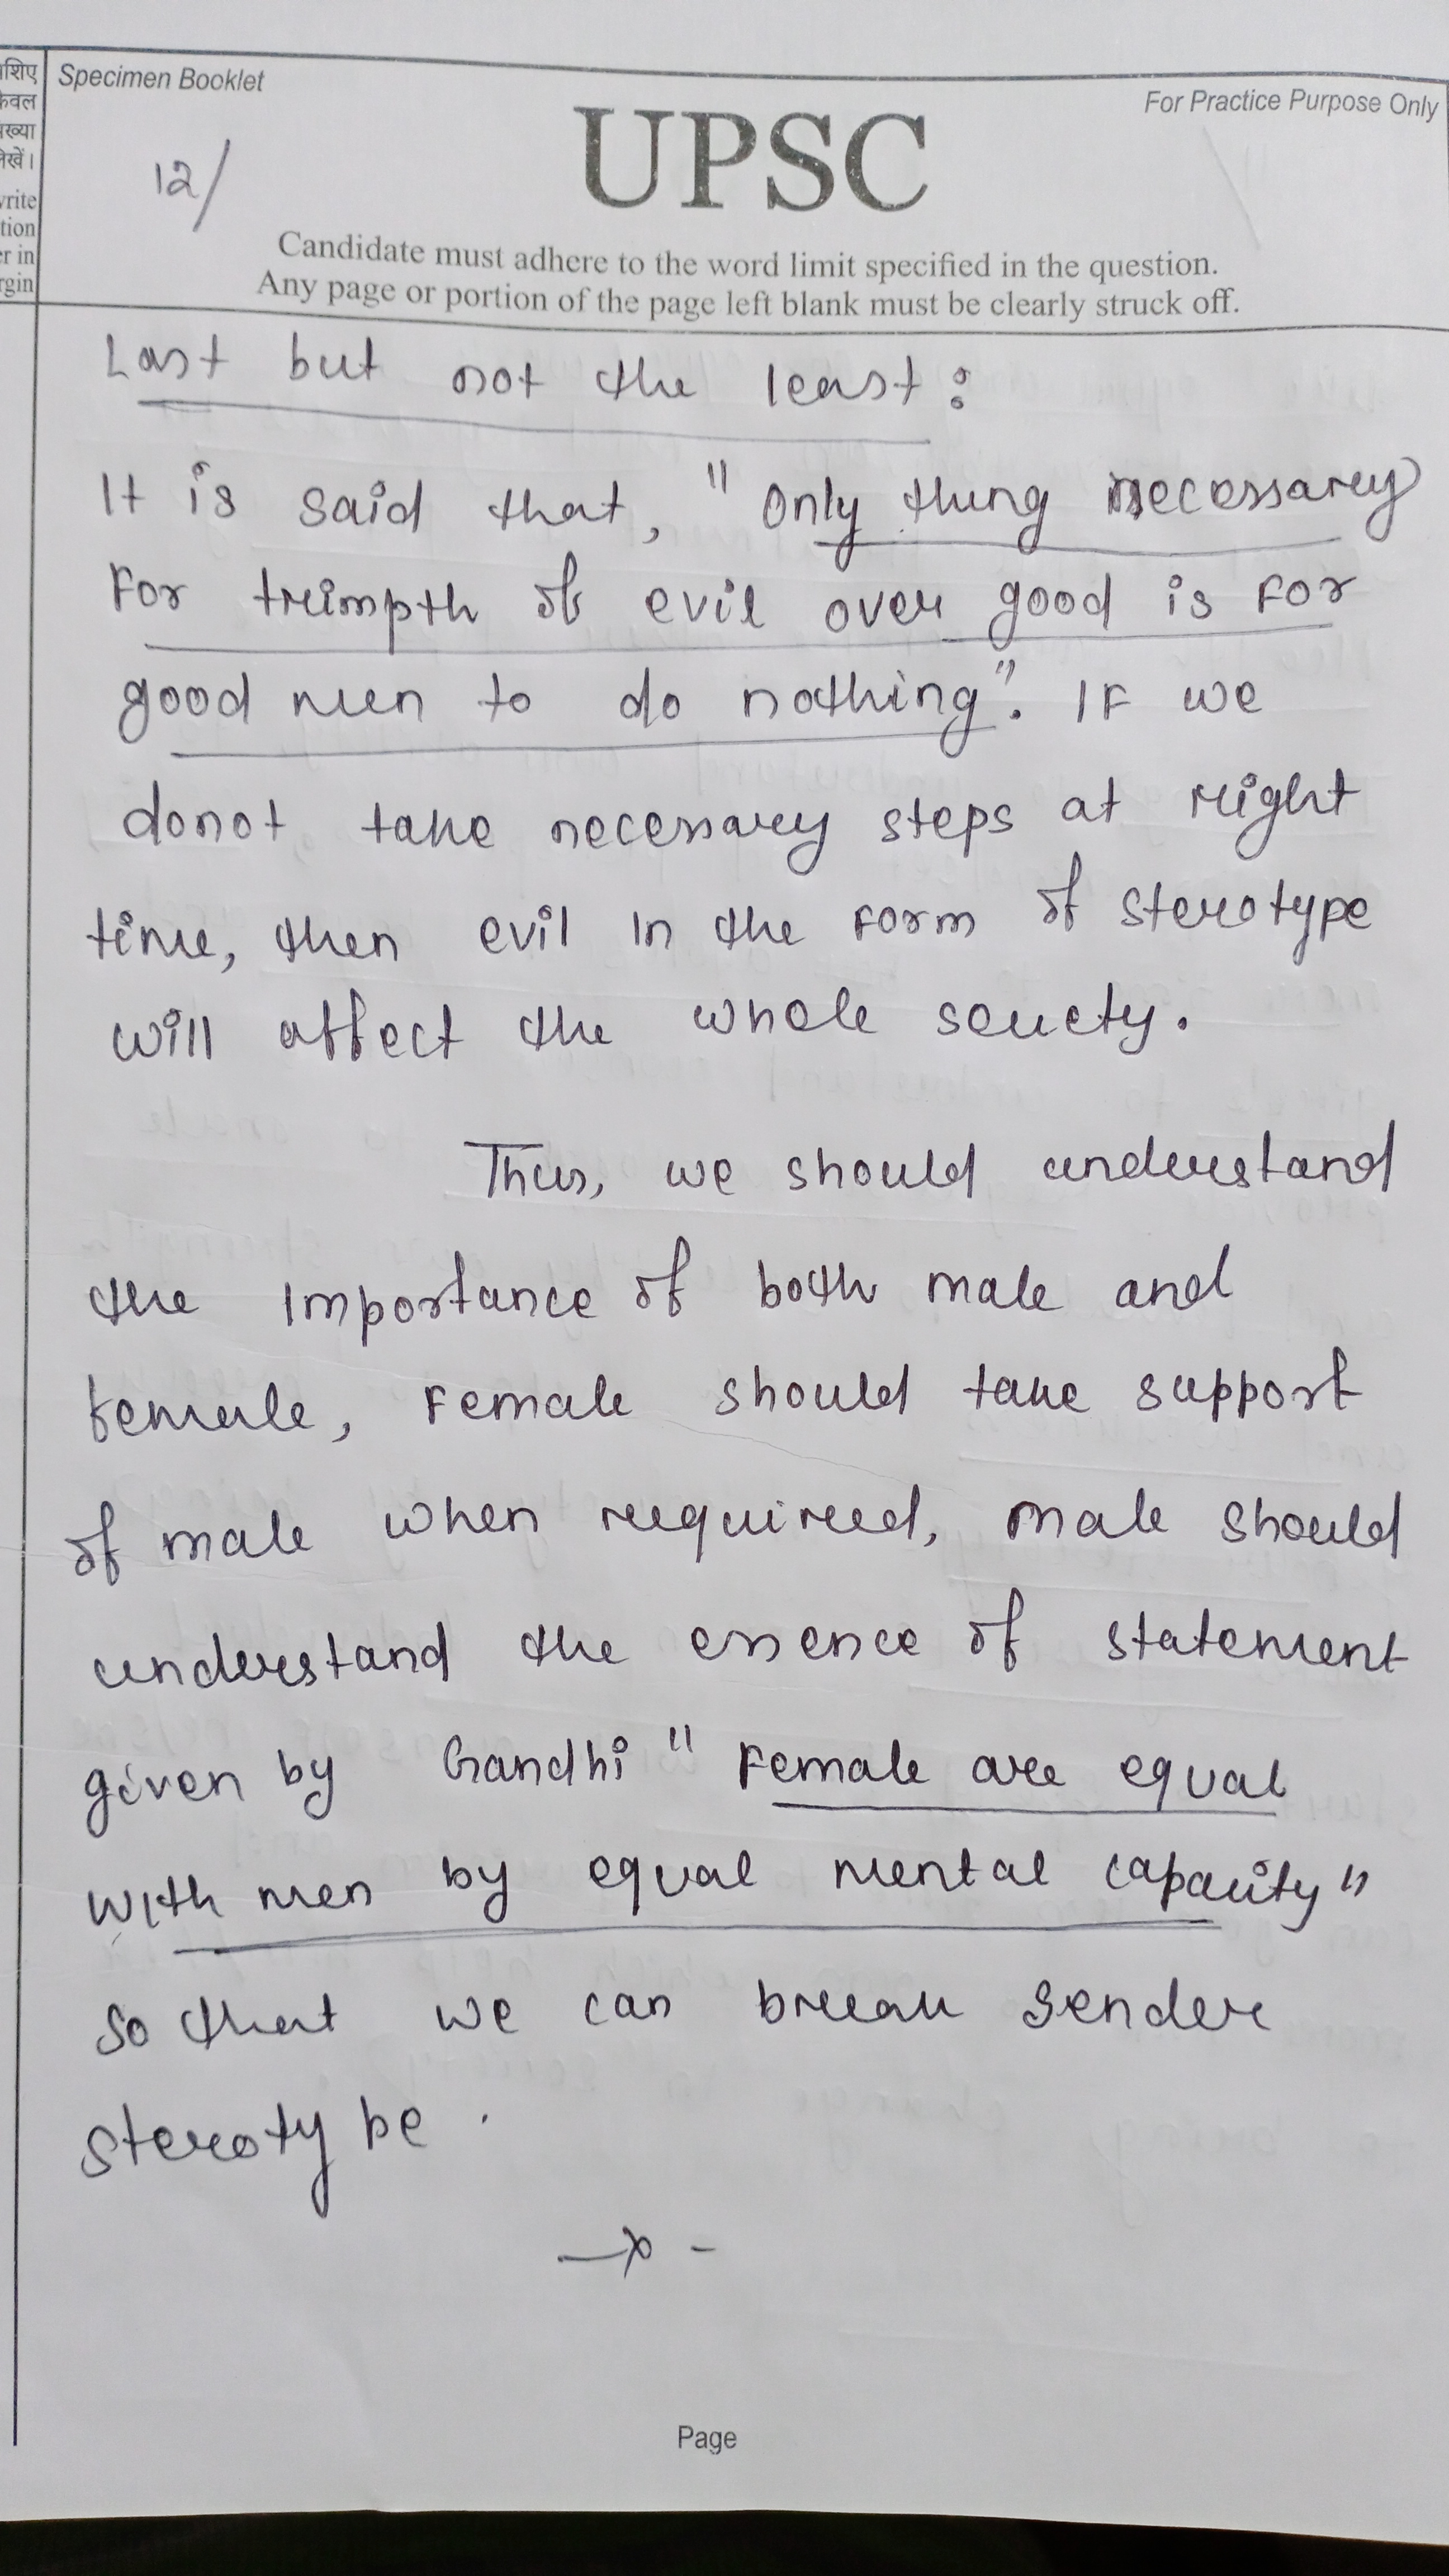 Specimen Booklet
For Practice Purpose Only
केवल
12/
UPSC
Candidate must adhere to the word limit specified in the question.
Any page or portion of the page left blank must be clearly struck off.
Last but not the least:
It is said that, "Only thing necessary
For triumpth of evil over good is for
good men to do nothing". If we
donot take necessary steps at right
time, then evil in the form of sterotype
will affect the whole society.
Thus, we should understand
the importance of both male and
female, Female should take support
of male when required, male should
understand the essence of statement
given by Gandhi "Female are equal
with men by equal mental capacity"
so that we can break gender
sterotybe.
Page